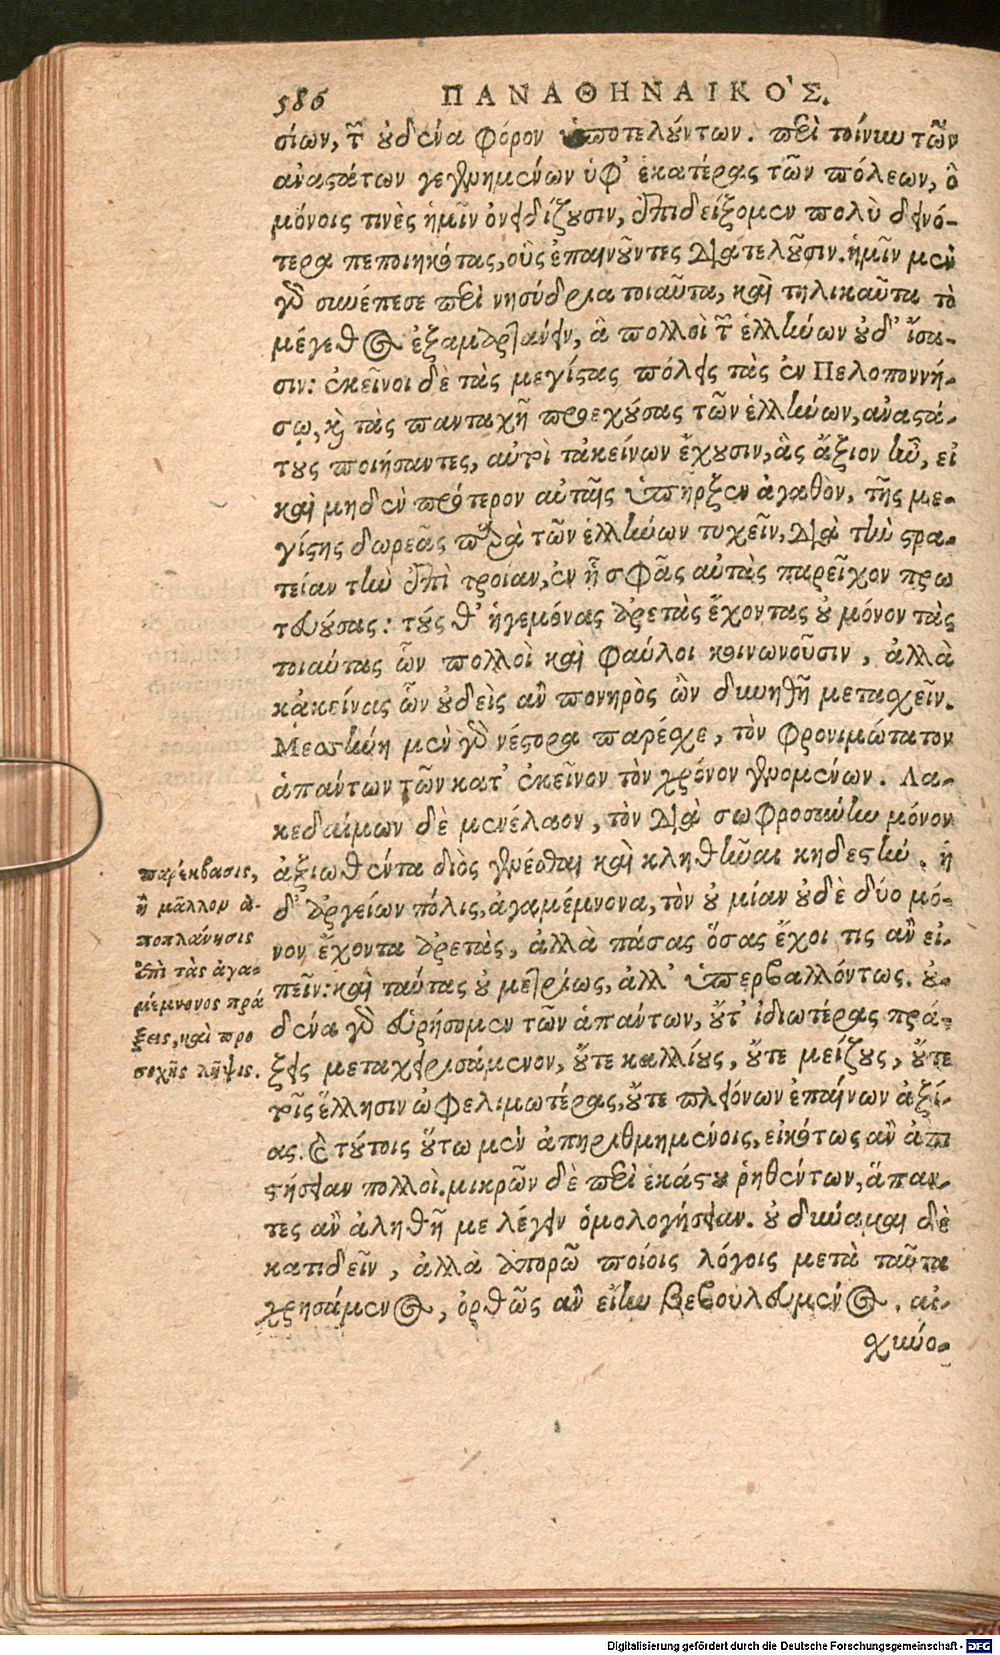 586 ΠΑΝΑΘΗΝΑΙΚΟ'Σ.
σίων, τῶν οὐδένα φόρον ὑποτελούντων. περὶ τοίνυν τῶν
ἀναστάτων γεγενημένων ὑφ' ἑκατέρας τῶν πόλεων, ὃ
μόνοις τινὲς ἡμῖν ὀνειδίζουσιν, ἐπιδείξομεν πολὺ δεινό-
τερα πεποιηκότας, οὓς ἐπαινοῦντες διατελοῦσιν. ἡμῖν μὲν
γὰρ συνέπεσε περὶ νησύδρια τοιαῦτα, καὶ τηλικαῦτα τὸ
μέγεθος ἐξαμαρτάνειν, ἃ πολλοὶ τῶν ἑλλήνων οὐδ' ἴσα-
σιν: ἐκεῖνοι δὲ τὰς μεγίστας πόλεις τὰς ἐν Πελοποννή-
σῳ, καὶ τὰς πανταχῆ προεχούσας τῶν ἑλλήνων, ἀναστά-
τους ποιήσαντες, αὐτοὶ τἀκείνων ἔχουσιν, ἃς ἄξιον ἦν, εἰ
καὶ μηδὲν πρότερον αὐταῖς ὑπῆρξεν ἀγαθὸν, τῆς με-
γίστης δωρεᾶς παρὰ τῶν ἑλλήνων τυχεῖν, διὰ τὴν στρα-
τείαν τὴν ἐπὶ τροίαν, ἐν ᾗ σφᾶς αὐτὰς παρεῖχον πρω
τευούσας: τούς θ' ἡγεμόνας ἀρετὰς ἔχοντας οὐ μόνον τὰς
τοιαύτας ὧν πολλοὶ καὶ φαύλοι κοινωνοῦσιν, ἀλλὰ
κἀκείνας ὧν οὐδεὶς ἂν πονηρὸς ὢν δυνηθῆ μετασχεῖν.
Μεσσήνη μὲν γὰρ νέστορα παρέσχε, τὸν φρονιμώτατον
ἁπάντων τῶν κατ' ἐκεῖνον τὸν χρόνον γενομένων. Λα-
κεδαίμων δὲ μενέλαον, τὸν διὰ σωφροσύνην μόνον
ἀξιωθέντα διὸς γενέσθαι καὶ κληθῆναι κηδεστήν. ἡ
δ' ἀργείων πόλις, ἀγαμέμνονα, τὸν οὐ μίαν οὐδὲ δύο μό-
νον ἔχοντα ἀρετὰς, ἀλλὰ πάσας ὅσας ἔχοι τις ἂν εἰ-
πεῖν: καὶ ταύτας οὐ μετρίως, ἀλλ' ὑπερβαλλόντως. οὐ-
δένα γὰρ εὑρήσομεν τῶν ἁπάντων, οὔτ' ἰδιωτέρας πρά-
ξεις μεταχειρισάμενον, οὔτε καλλίους, οὔτε μείζους, οὔτε
τοῖς ἕλλησιν ὠφελιμωτέρας, οὔτε πλειόνων ἐπαίνων ἀξί-
ας. καὶ τούτοις οὕτω μὲν ἀπηριθμημένοις, εἰκότως ἂν ἀπι
στήσειαν πολλοὶ. μικρῶν δὲ περὶ ἑκάστου ῥηθέντων, ἅπαν-
τες ἂν ἀληθῆ με λέγειν ὁμολογήσειαν. οὐ δύναμαι δὲ
κατιδεῖν, ἀλλὰ ἀπορῶ ποίοις λόγοις μετὰ ταῦτα
χρησάμενος, ὀρθῶς ἂν εἴην βεβουλευμένος. αἰ-
χυνό-
παρέκβασις,
ἢ μᾶλλον ἀ-
ποπλάνησις
ἐπὶ τὰς ἀγα-
μέμνονος πρά
ξεις, καὶ προ
σοχῆς λῆψις.
Digitalisierung gefördert durch die Deutsche Forschungsgemeinschaft - DFG